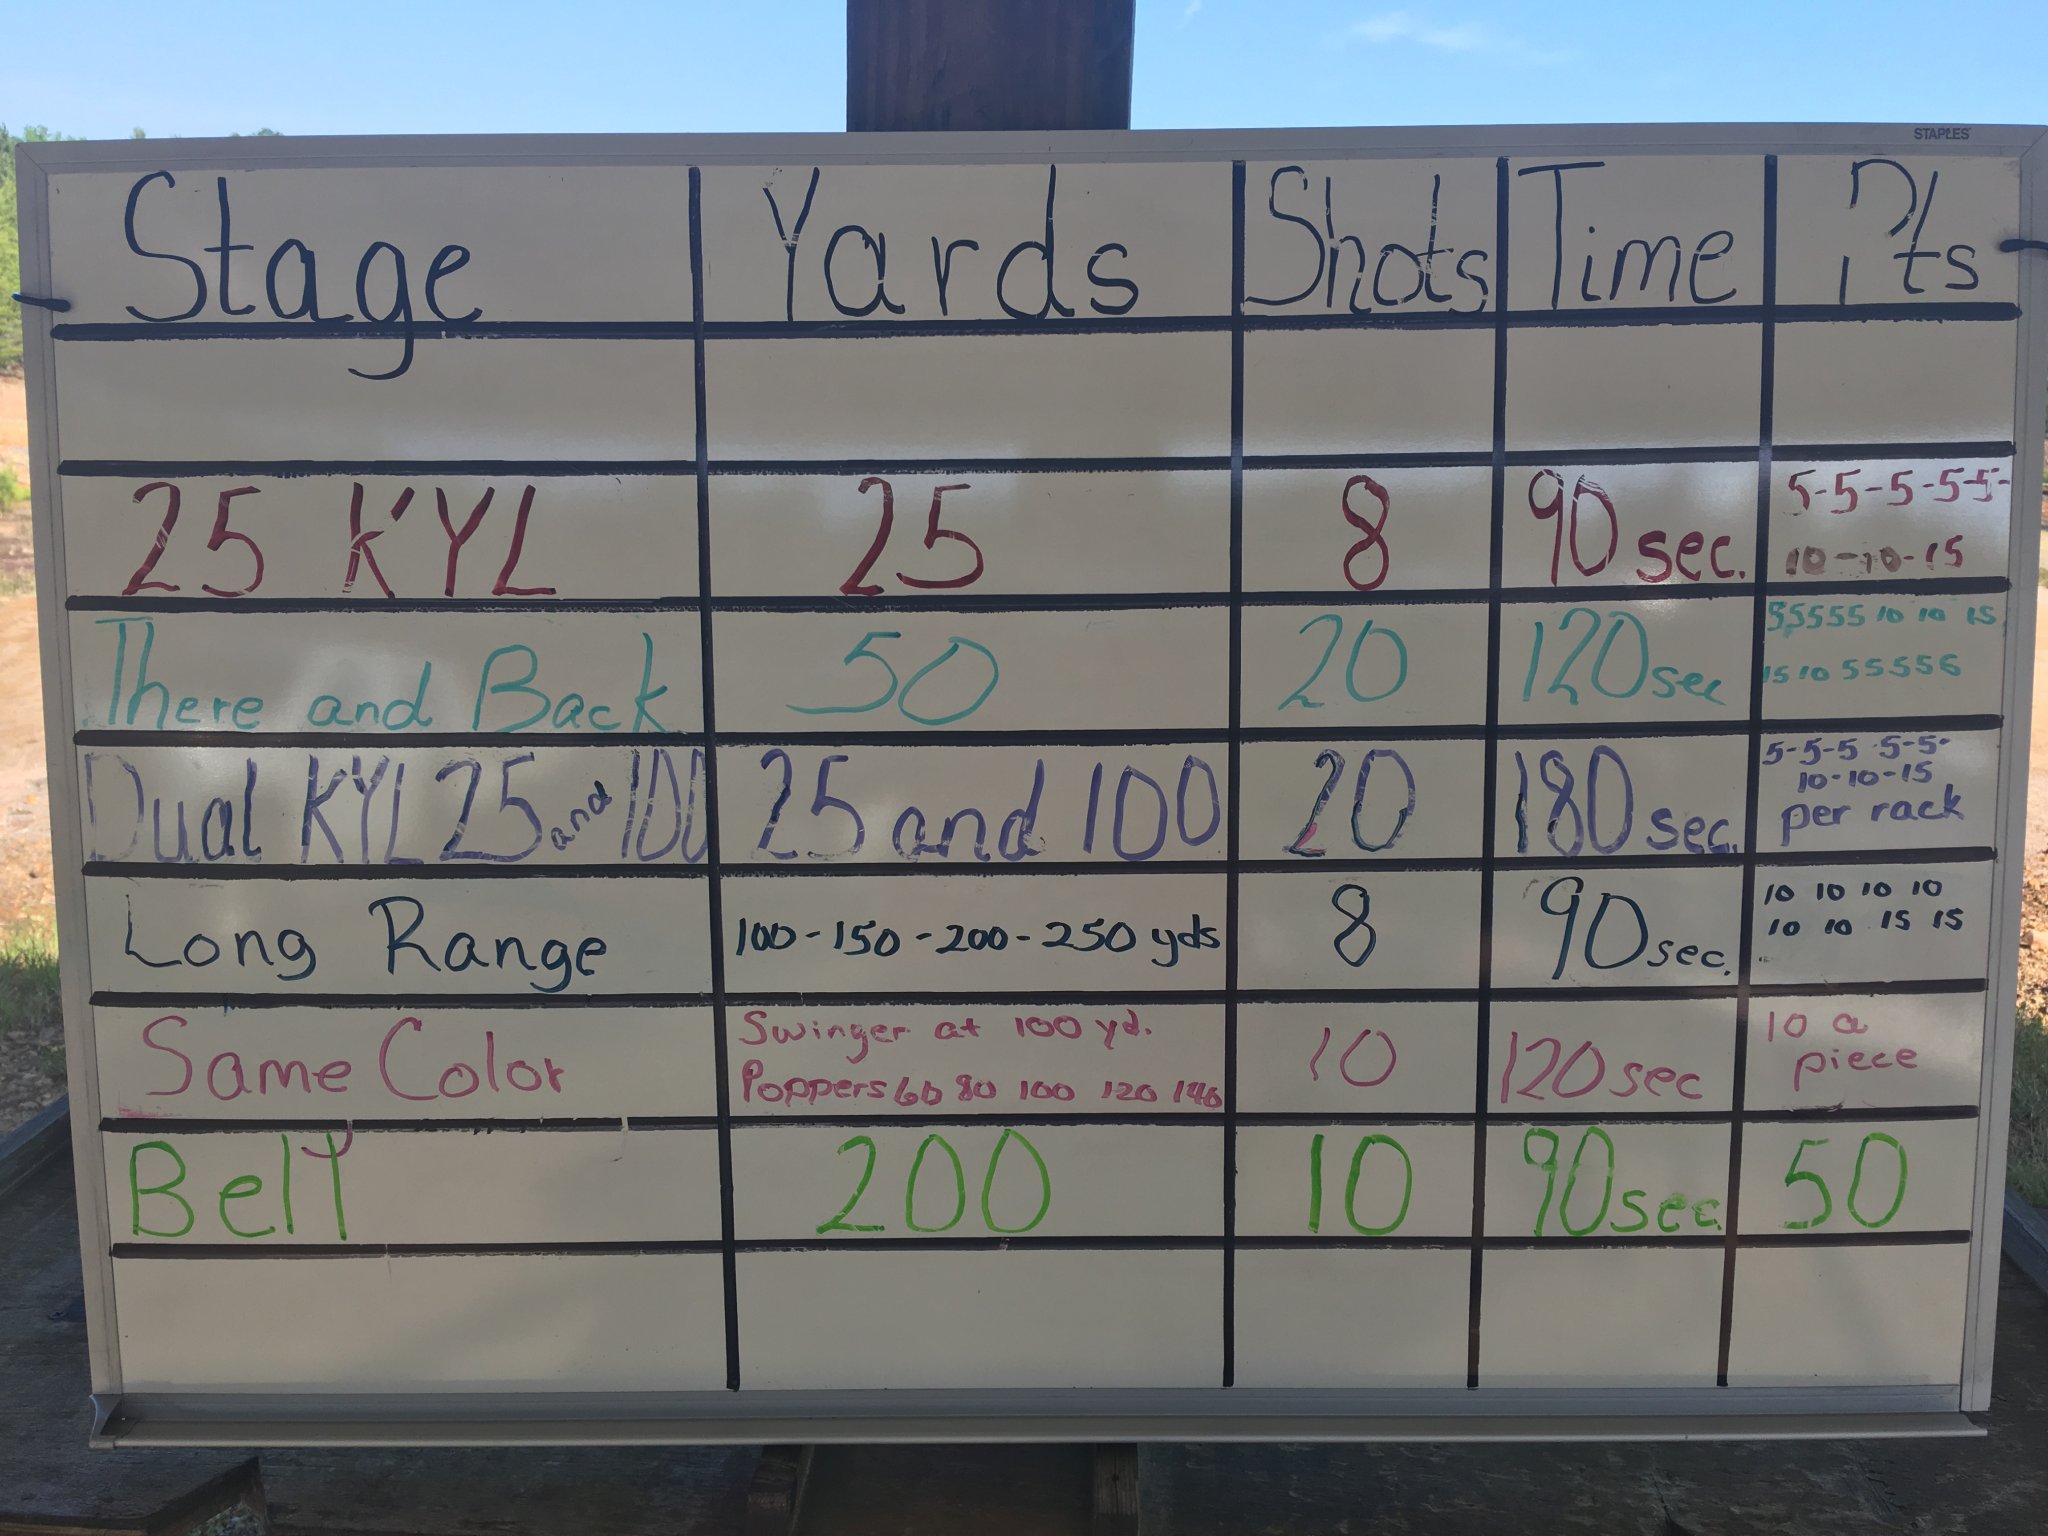 STAPLES
Stage Yards Shots Time Pts
25 KYL 25 8 90 sec. 5-5-5-5-5-
10-10-15
There and Back 50 20 120 sec 55555 10 10 15
15 10 555555
Dual KYL 25 and 100 25 and 100 20 180 sec. 5-5-5-5-5-
10-10-15
per rack
Long Range 100-150-200-250 yds 8 90 sec. 10 10 10 10
10 10 15 15
Same Color Swinger at 100 yd. 10 120 sec 10 a
Poppers 60 80 100 120 140 piece
Belt 200 10 90 sec. 50